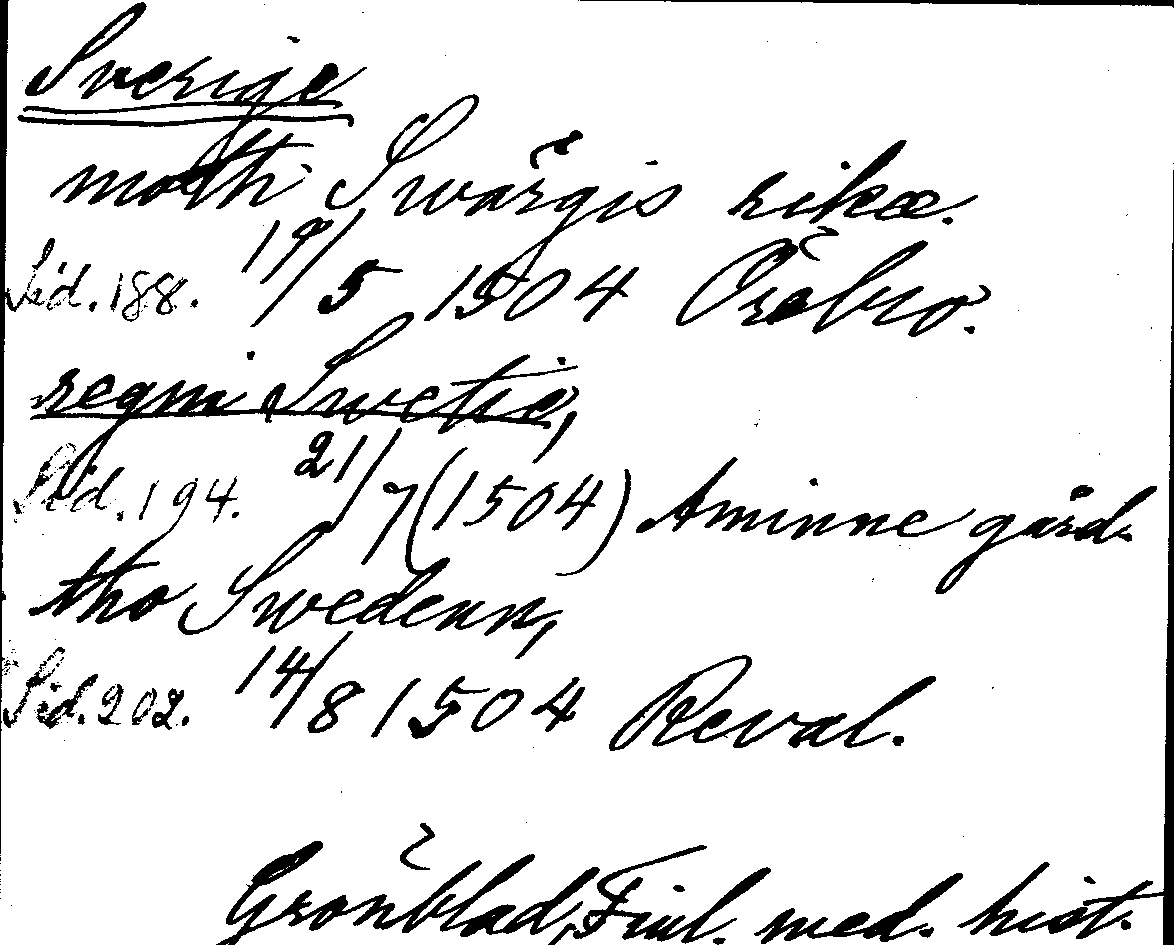 Sverige
moth Swärgis rikæ.
Sid. 188. 19/5 1504 Örebro.
regni Swetie,
Sid. 194. 21/7 (1504) Aminne gård.
tho Swedenn,
Sid. 202. 14/8 1504 Reval.
Grönblad, Finl. med. hist.